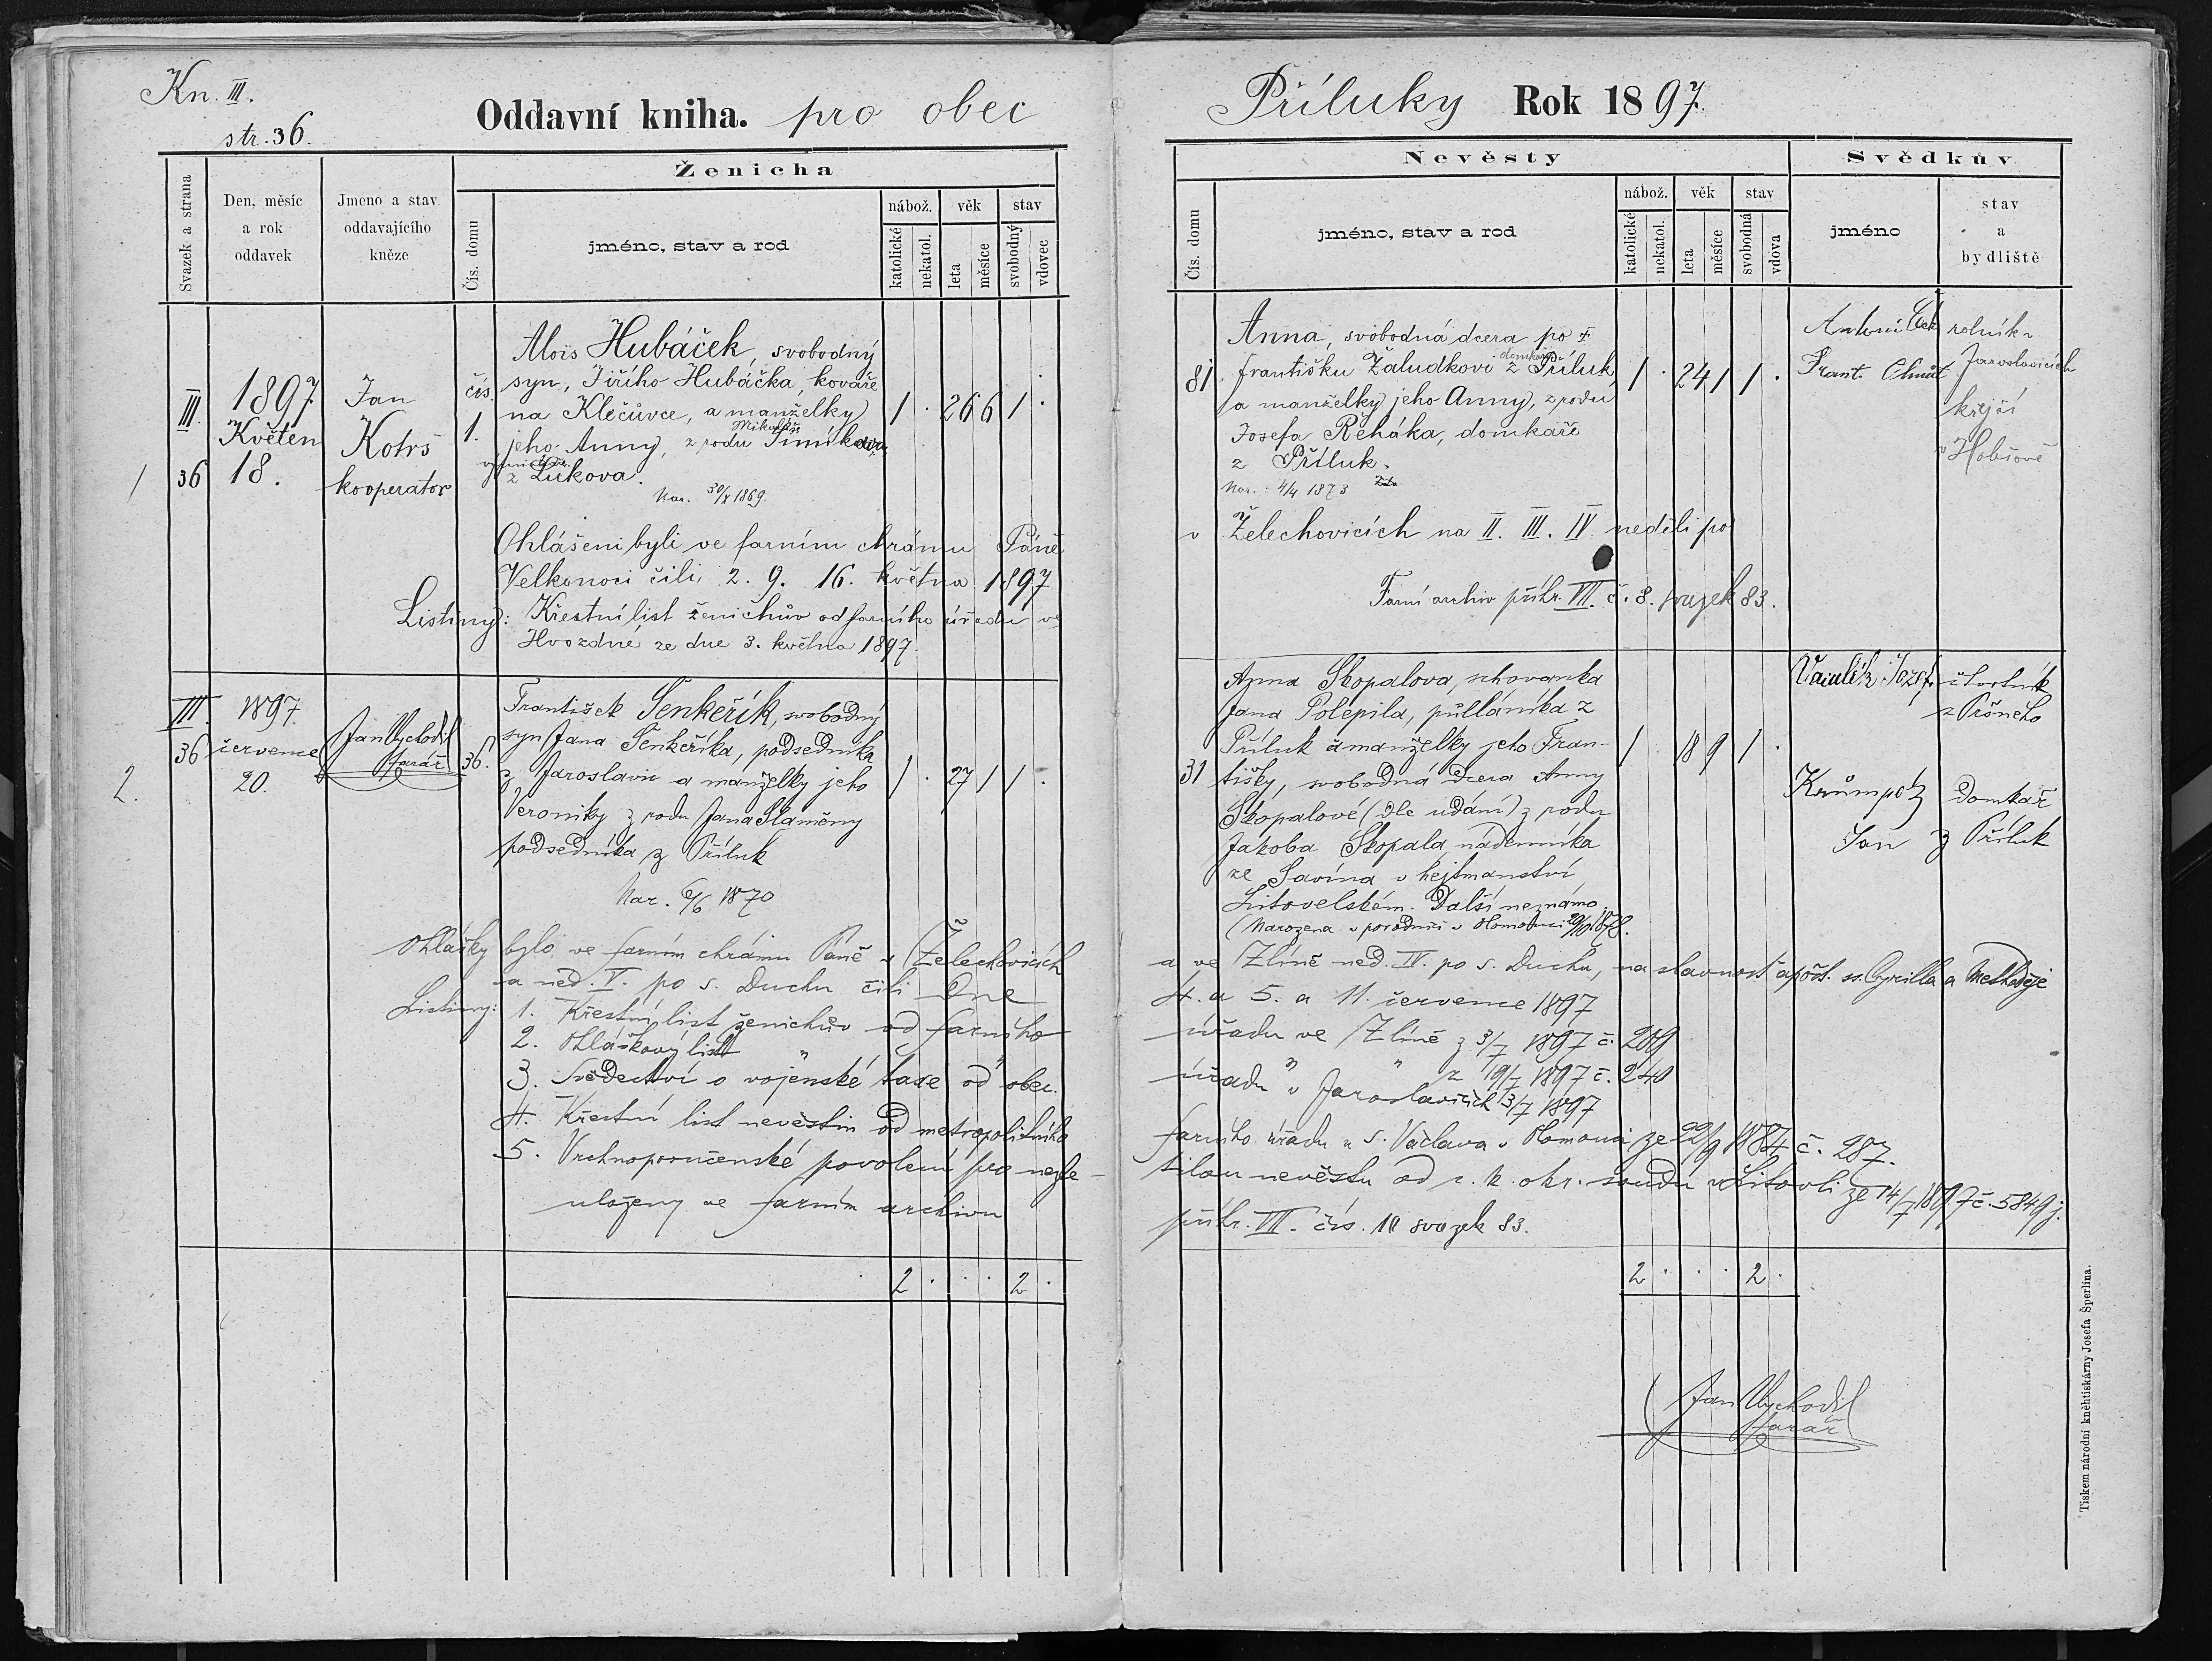 Kn. III.
str. 36.
Oddavní kniha. pro obec
Svazek a strana
Den, měsíc
a rok
oddavek
Jmeno a stav
oddavajícího
kněze
Ženicha
Čís. domu
jméno, stav a rod
nábož.
věk
stav
katolické
nekatol.
leta
měsíce
svobodný
vdovec
III.
36
1897
Květen
18.
Jan
Kotrš
kooperator
čís.
1.
Alois Hubáček, svobodný
syn, Jiřího Hubáčka, kováře
na Klečůvce, a manželky
jeho Anny, z rodu Mikuláše
z Lukova.
Nar. 30/X 1869.
1 . 26 6 1 .
1
Ohlášeni byli ve farním chrámu Páně
Velkonoci čili 2. 9. 16. května 1897
Listiny: Křestní list ženichův od farního úřadu ve
Hvozdné ze dne 3. května 1897.
III.
36
1897
července
20.
Jan Vychodil
farář
36.
2.
František Šenkeřík, svobodný
syn Jana Šenkeříka, podsedníka
z Jaroslavic a manželky jeho
Veroniky z rodu Jana Slaměny
podsedníka z Příluk
Nar. 6/6 1870
1 . 27 1 1 .
Ohlášky byly ve farním chrámu Páně v Želechovicích
a ned. V. po s. Duchu čili dne
Listiny: 1. Křestní list ženichův od farního
2. Ohláškový list "
3. Svědectví o vojenské taxe od obec.
4. Křestní list nevěstin od metropolitního
5. Vrchnoporučenské povolení pro nezle-
uloženy ve farním archivu
2 . . . 2 .
Příluky Rok 1897.
Nevěsty
Svědkův
Čís. domu
jméno, stav a rod
nábož.
věk
stav
katolické
nekatol.
leta
měsíce
svobodná
vdova
jméno
stav
a
bydliště
81
Anna, svobodná dcera po †
Františku Žaludkovi domkáři z Příluk,
a manželky jeho Anny, z rodu
Josefa Řeháka, domkaře
z Příluk.
Nar.: 4/4 1873
1 . 24 1 1 .
Antonín
rolník v
Jaroslavicích
Frant.
krejčí
v
v Želechovicích na II. III. IV. neděli po
Farní archiv přihr. VII. č. 8. svazek 83.
31
Anna Skopalova, schovanka
Jana Polepila, půlláníka z
Příluk a manželky jeho Fran-
tišky, svobodná dcera Anny
Skopalové (dle udání) z rodu
Jakoba Skopala nádenníka
ze Savína v hejtmanství
Litovelském. Další neznámo.
(Narozena v porodnici v Olomouci 1878.
1 . 18 9 1 .
Josef
čtvrtník
z Pršného
Krůmpolz
Jan
domkař
z Příluk
a ve Zlíně ned. IV. po s. Duchu, na slavnost apošt. ss. Cyrilla a Methoděje
4. a 5. a 11. července 1897
úřadu ve Zlíně z 3/7 1897 č. 209
úřadu " " z 19/7 1897 č. 240
v Jaroslavicích 13/7 1897
farního úřadu u s. Václava v Olomouci ze 22/9 1884 č. 287.
tilou nevěstu od c. k. okr. soudu v Litovli ze 14/7 1897 č. 5849 j.
přihr. VII. čís. 10 svazek 83.
2 . . . 2 .
Jan Vychodil
farář
Tiskem národní kněhtiskárny Josefa Šperlina.